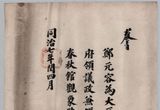 鄭元容爲大
府領議政無
春秋館觀象
同治七年閏四月